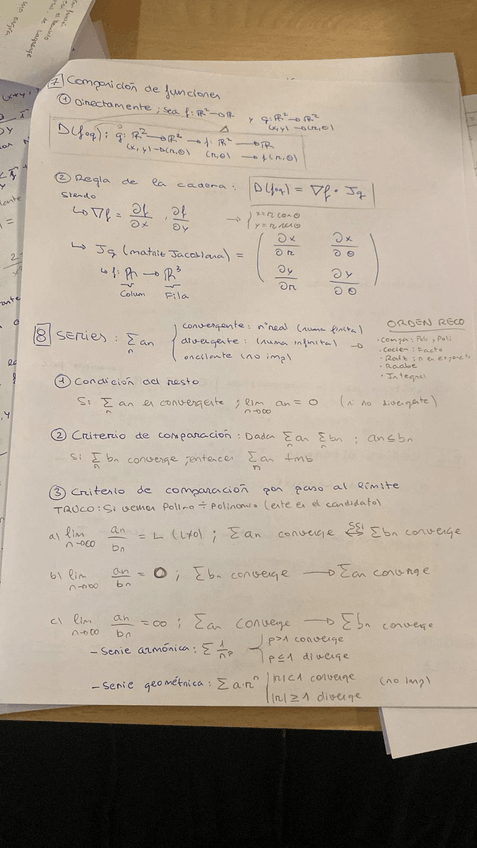 7 Composición de funciones
① Directamente; sea f: ℝ²→ℝ y g: ℝ²→ℝ²
(x,y)→(r,θ)
D(f∘g): g: ℝ²→ℝ²→f: ℝ²→ℝ
(x,y)→(r,θ) (r,θ)→f(r,θ)
② Regla de la cadena: D(f∘g) = ∇f · Jg
siendo
↳ ∇f = ∂f/∂x , ∂f/∂y → { x = r cos θ
y = r sen θ
↳ Jg (matriz Jacobiana) = ( ∂x/∂r ∂x/∂θ
∂y/∂r ∂y/∂θ )
↳ f: ℝ → ℝ³
Colum Fila
8 Series: Σ an { convergente: nº real (suma finita)
divergente: (suma infinita)
oscilante (no imp)
ORDEN RECO
· Compar: Poli, Poli
· Cocien: Facto
· Raíz: n en exponente
· Raabe
· Integral
① Condición del resto
Si Σ an es convergente; lim n→∞ an = 0 (si no divergente)
② Criterio de comparación: Dadas Σ an Σ bn ; an ≤ bn
Si Σ bn converge; entonces Σ an tmb
③ Criterio de comparación por paso al límite
TRUCO: Si vemos Polino ÷ Polinomio (este es el candidato)
a) lim n→∞ an/bn = L (L≠0) ; Σ an converge ⟺ SSI Σ bn converge
b) lim n→∞ an/bn = 0 ; Σ bn converge → Σ an converge
c) lim n→∞ an/bn = ∞ ; Σ an converge → Σ bn converge
- Serie armónica: Σ 1/nᵖ { p>1 converge
p≤1 diverge
- Serie geométrica: Σ a·rⁿ { |r|<1 converge (no imp)
|r|≥1 diverge